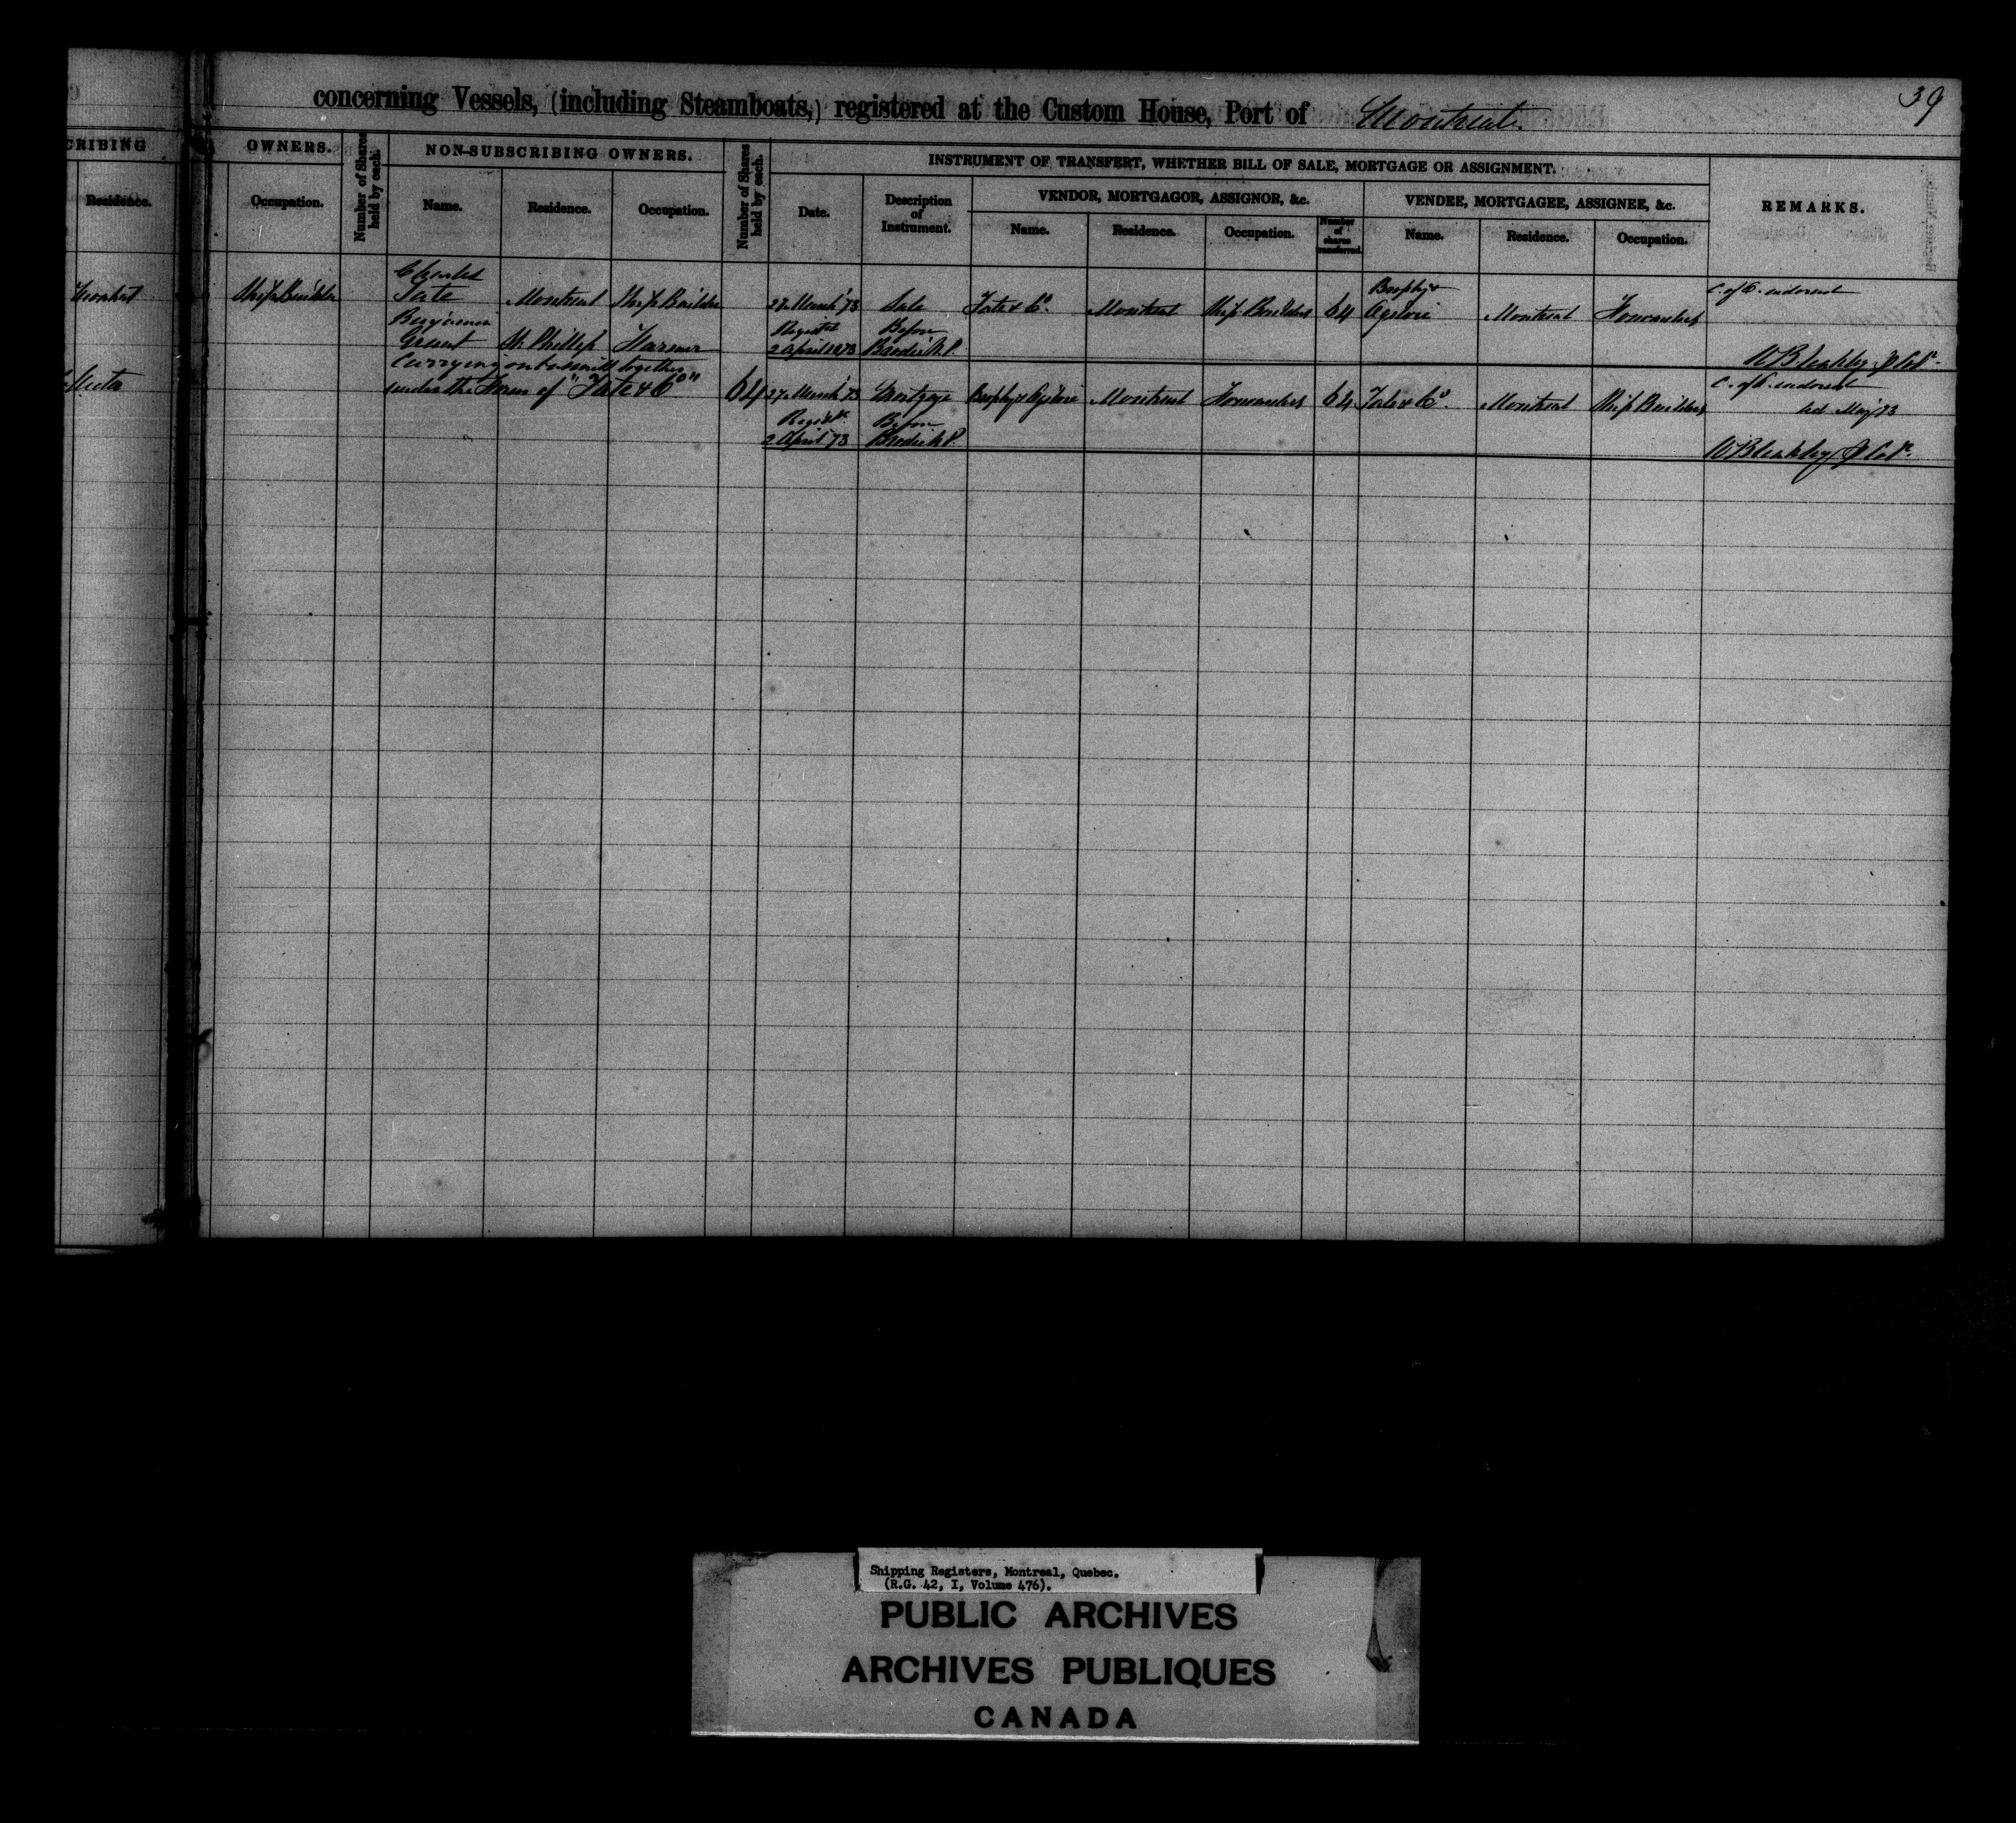 39
concerning Vessels, (including Steamboats,) registered at the Custom House, Port of Montreal.
CRIBING
OWNERS.
Number of Shares held by each.
NON-SUBSCRIBING OWNERS.
Number of Shares held by each.
INSTRUMENT OF TRANSFERT, WHETHER BILL OF SALE, MORTGAGE OR ASSIGNMENT.
REMARKS.
VENDOR, MORTGAGOR, ASSIGNOR, &c.
VENDEE, MORTGAGEE, ASSIGNEE, &c.
Residence.
Occupation.
Name.
Residence.
Occupation.
Date.
Description
of
Instrument.
Name.
Residence.
Occupation.
Number
of
shares
transferred.
Name.
Residence.
Occupation.
Ship Builder
Charles
Tate
Montreal
Ship Builder
27 March '73
Sale
Tate & Co.
Montreal
Ship Builders
64
Brophy &
Ogilvie
Montreal
Forwarders
C. of O. endorsed
Benjamin
Grant
St. Phillip
Farmer
Registd
2 April 1873
Before
Brodie N.P.
W Bleakley
Carrying on business together
under the Firm of "Tate & Co"
64
27 March '73
Mortgage
Brophy & Ogilvie
Montreal
Forwarders
64
Tate & Co.
Montreal
Ship Builders
C. of O. endorsed
May '73
Registd
2 April '73
Before
Brodie N.P.
W Bleakley
Shipping Registers, Montreal, Quebec.
(R.G. 42, I, Volume 476).
PUBLIC ARCHIVES
ARCHIVES PUBLIQUES
CANADA